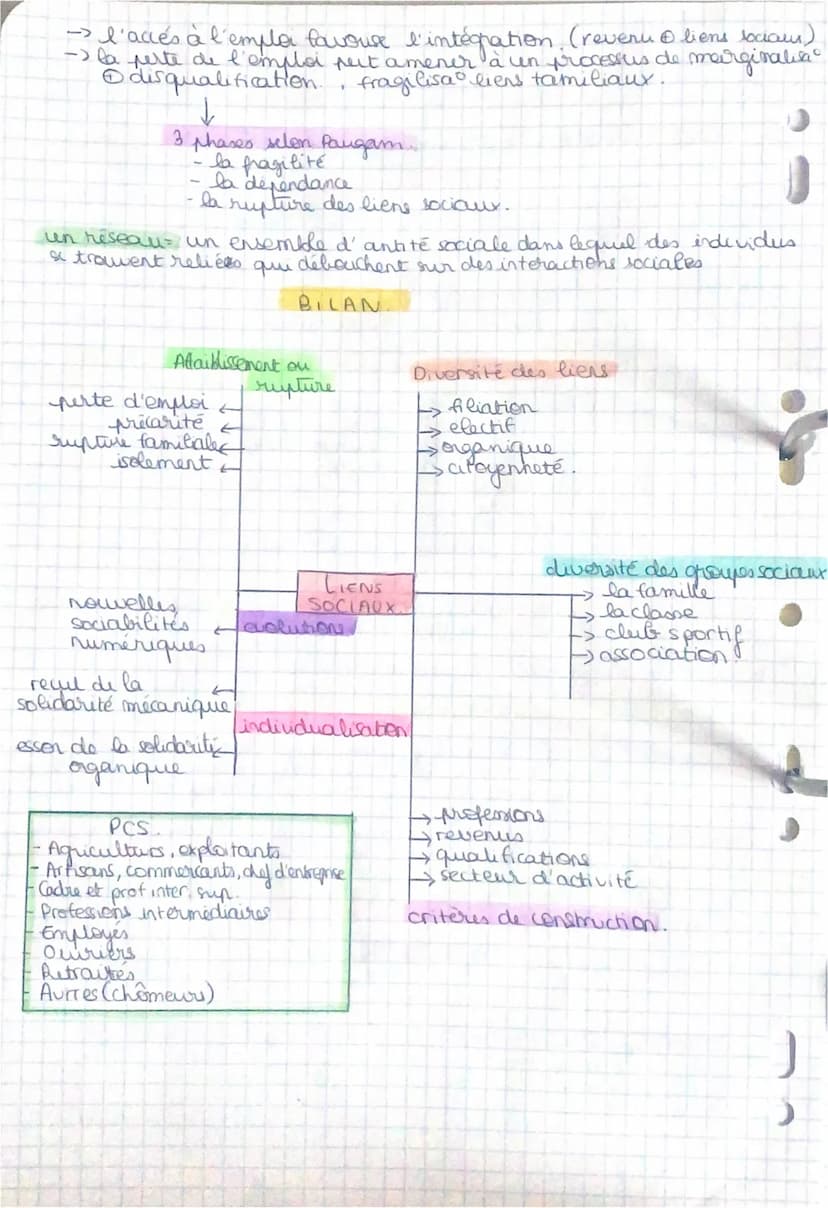 → l'accés à l'emploi favorise l'intégration. (revenu ⊕ liens sociaux)
→ la perte de l'emploi peut amener à un processus de marginalisa°
⊕ disqualification. , fragilisa° liens familiaux.
↓
3 phases selon Paugam.
- la fragilité
- la dépendance
- la rupture des liens sociaux.
un réseau = un ensemble d'antité sociale dans lequel des individus
se trouvent reliées qui débouchent sur des interactions sociales
BILAN.
Affaiblissement ou
rupture
perte d'emploi ←
précarité ←
rupture familiale ←
isolement ←
Diversité des liens
→ filiation
→ electif
→ organique
→ citoyenneté.
LIENS
SOCIAUX
diversité des groupes sociaux
→ la famille
→ la classe
→ club sportif
→ association.
évolutions
nouvelles
sociabilités ←
numériques
recul de la
solidarité mécanique ←
essor de la solidarité
organique
individualisation
→ professions
→ revenus
→ qualifications
→ secteur d'activité
critères de construction.
PCS.
- Agriculturs, exploitants
- Artisans, commercants, chef d'entreprise
- Cadre et prof inter. sup.
- Professions intermédiaires
- Employés
- Ouvriers
- Retraités
- Autres (chômeurs)